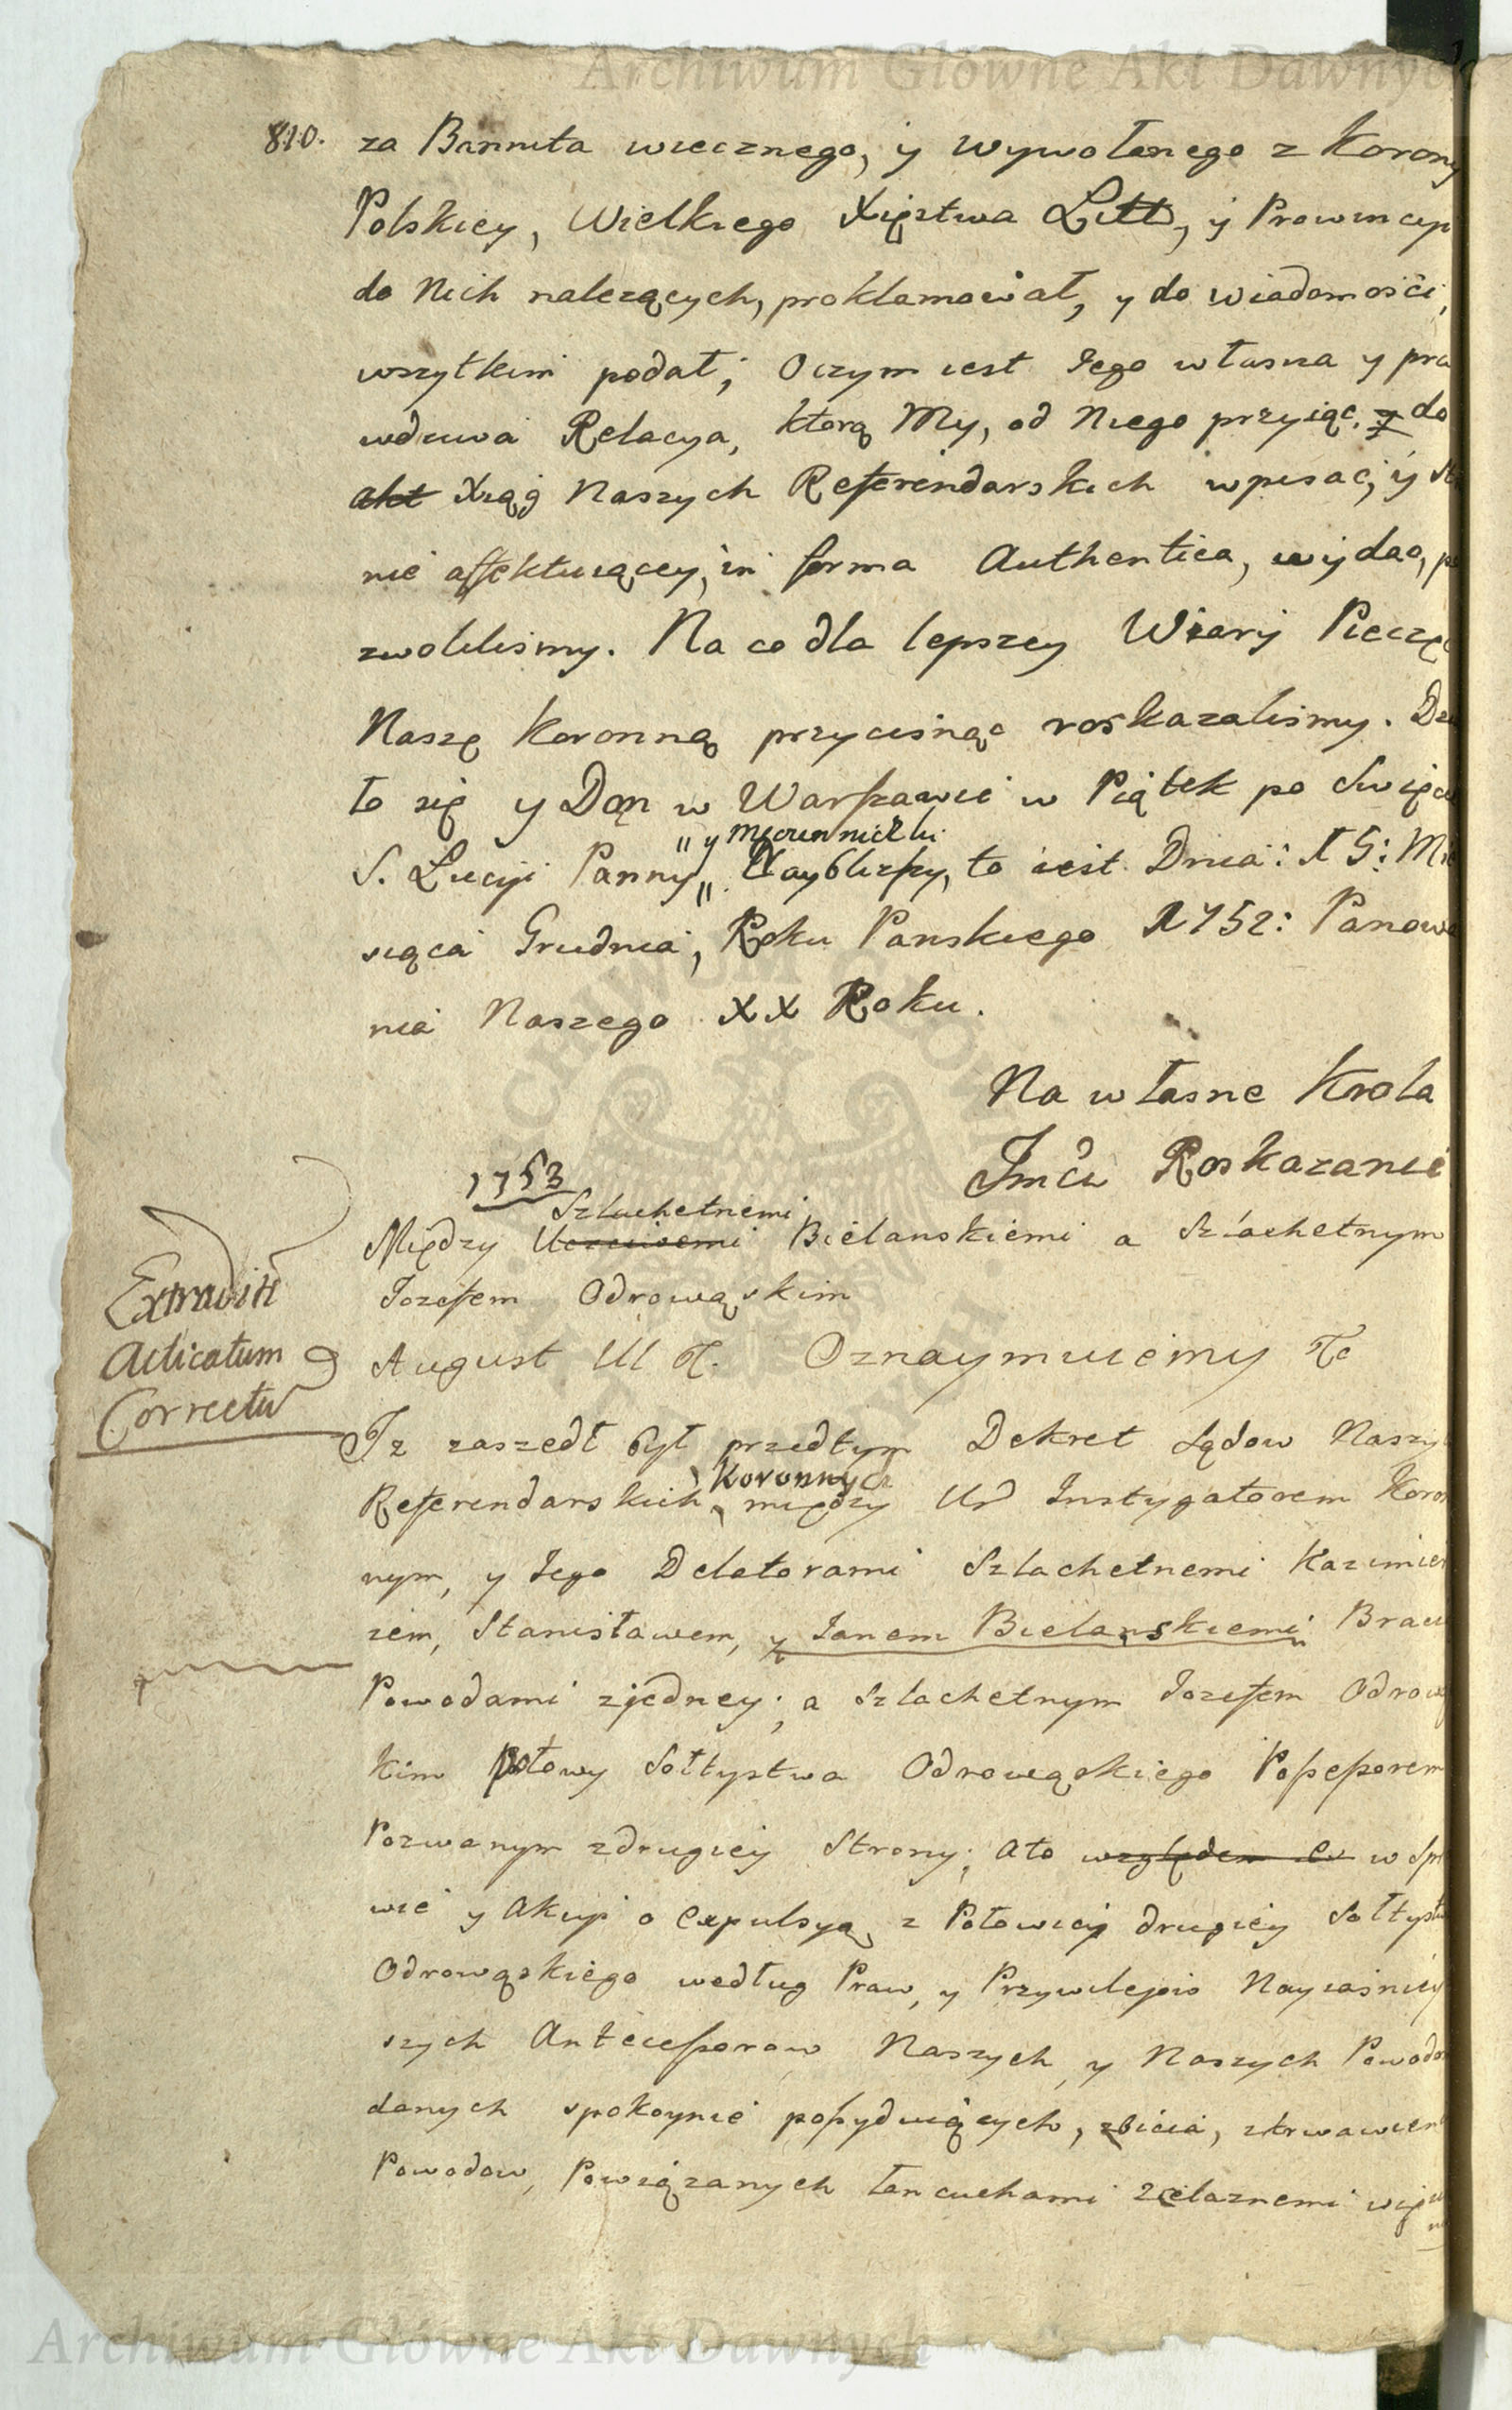 Archiwum Główne Akt Dawnych
810. za Bannita wiecznego, y wywołanego z Korony
Polskiey, Wielkiego Xięztwa Litt, y Prowincyi
do Nich nalezących, proklamował, y do wiadomości,
wszytkim podał; Oczym iest Iego własna y pra
wdziwa Relacya, ktorą My, od Niego przyiąc, y do
akt Xiąg Naszych Referendarskich wpisac, y St
nie affektuiącey, in forma Authentica, wydac, po
zwoliliśmy. Na co dla lepszey Wiary Pieczęć
Naszę Koronną przycisnąc roskazaliśmy. Dzia
ło się y Dan w Warszawie w Piątek po Swięcie
"y Męczenniczki
S. Lucyi Panny" Nayblizszy, to iest Dnia: 15: Mie
siąca Grudnia, Roku Panskiego 1752: Panowa
nia Naszego XX Roku.
Na własne Krola
Jmci Roskazanie
1753
Szlachetnemi
Między Uczciwemi Bielanskiemi a Szlachetnym
Iozefem Odrowąskim
Extradit
Acticatum
Correctu
August III &. Oznaymuiemy &c
Iz zaszedł był przedtym Dekret Sądow Naszy
Koronnych
Referendarskich, między Ur Instygatorem Koron
nym, y Iego Delatorami Szlachetnemi Kazimier
zem, Stanisławem, y Ianem Bielanskiemi Braci
Powodami zjedney; a Szlachetnym Iozefem Odrowąs
kim Połowy Sołtystwa Odrowąskiego Possessorem
Pozwanym zdrugiey Strony; ato względem Ex w Spra
wie y Akcyi o Expulsyą z Połowicy drugiey Sołtystw
Odrowąskiego według Praw, y Przywilejow Nayiaśniey
szych Antecessorow Naszych y Naszych Powodom
danych spokoynie possyduiących, zbicia, zkrwawien
Powodow, Powiązanych łancuchami Zelaznemi więz
Archiwum Główne Akt Dawnych